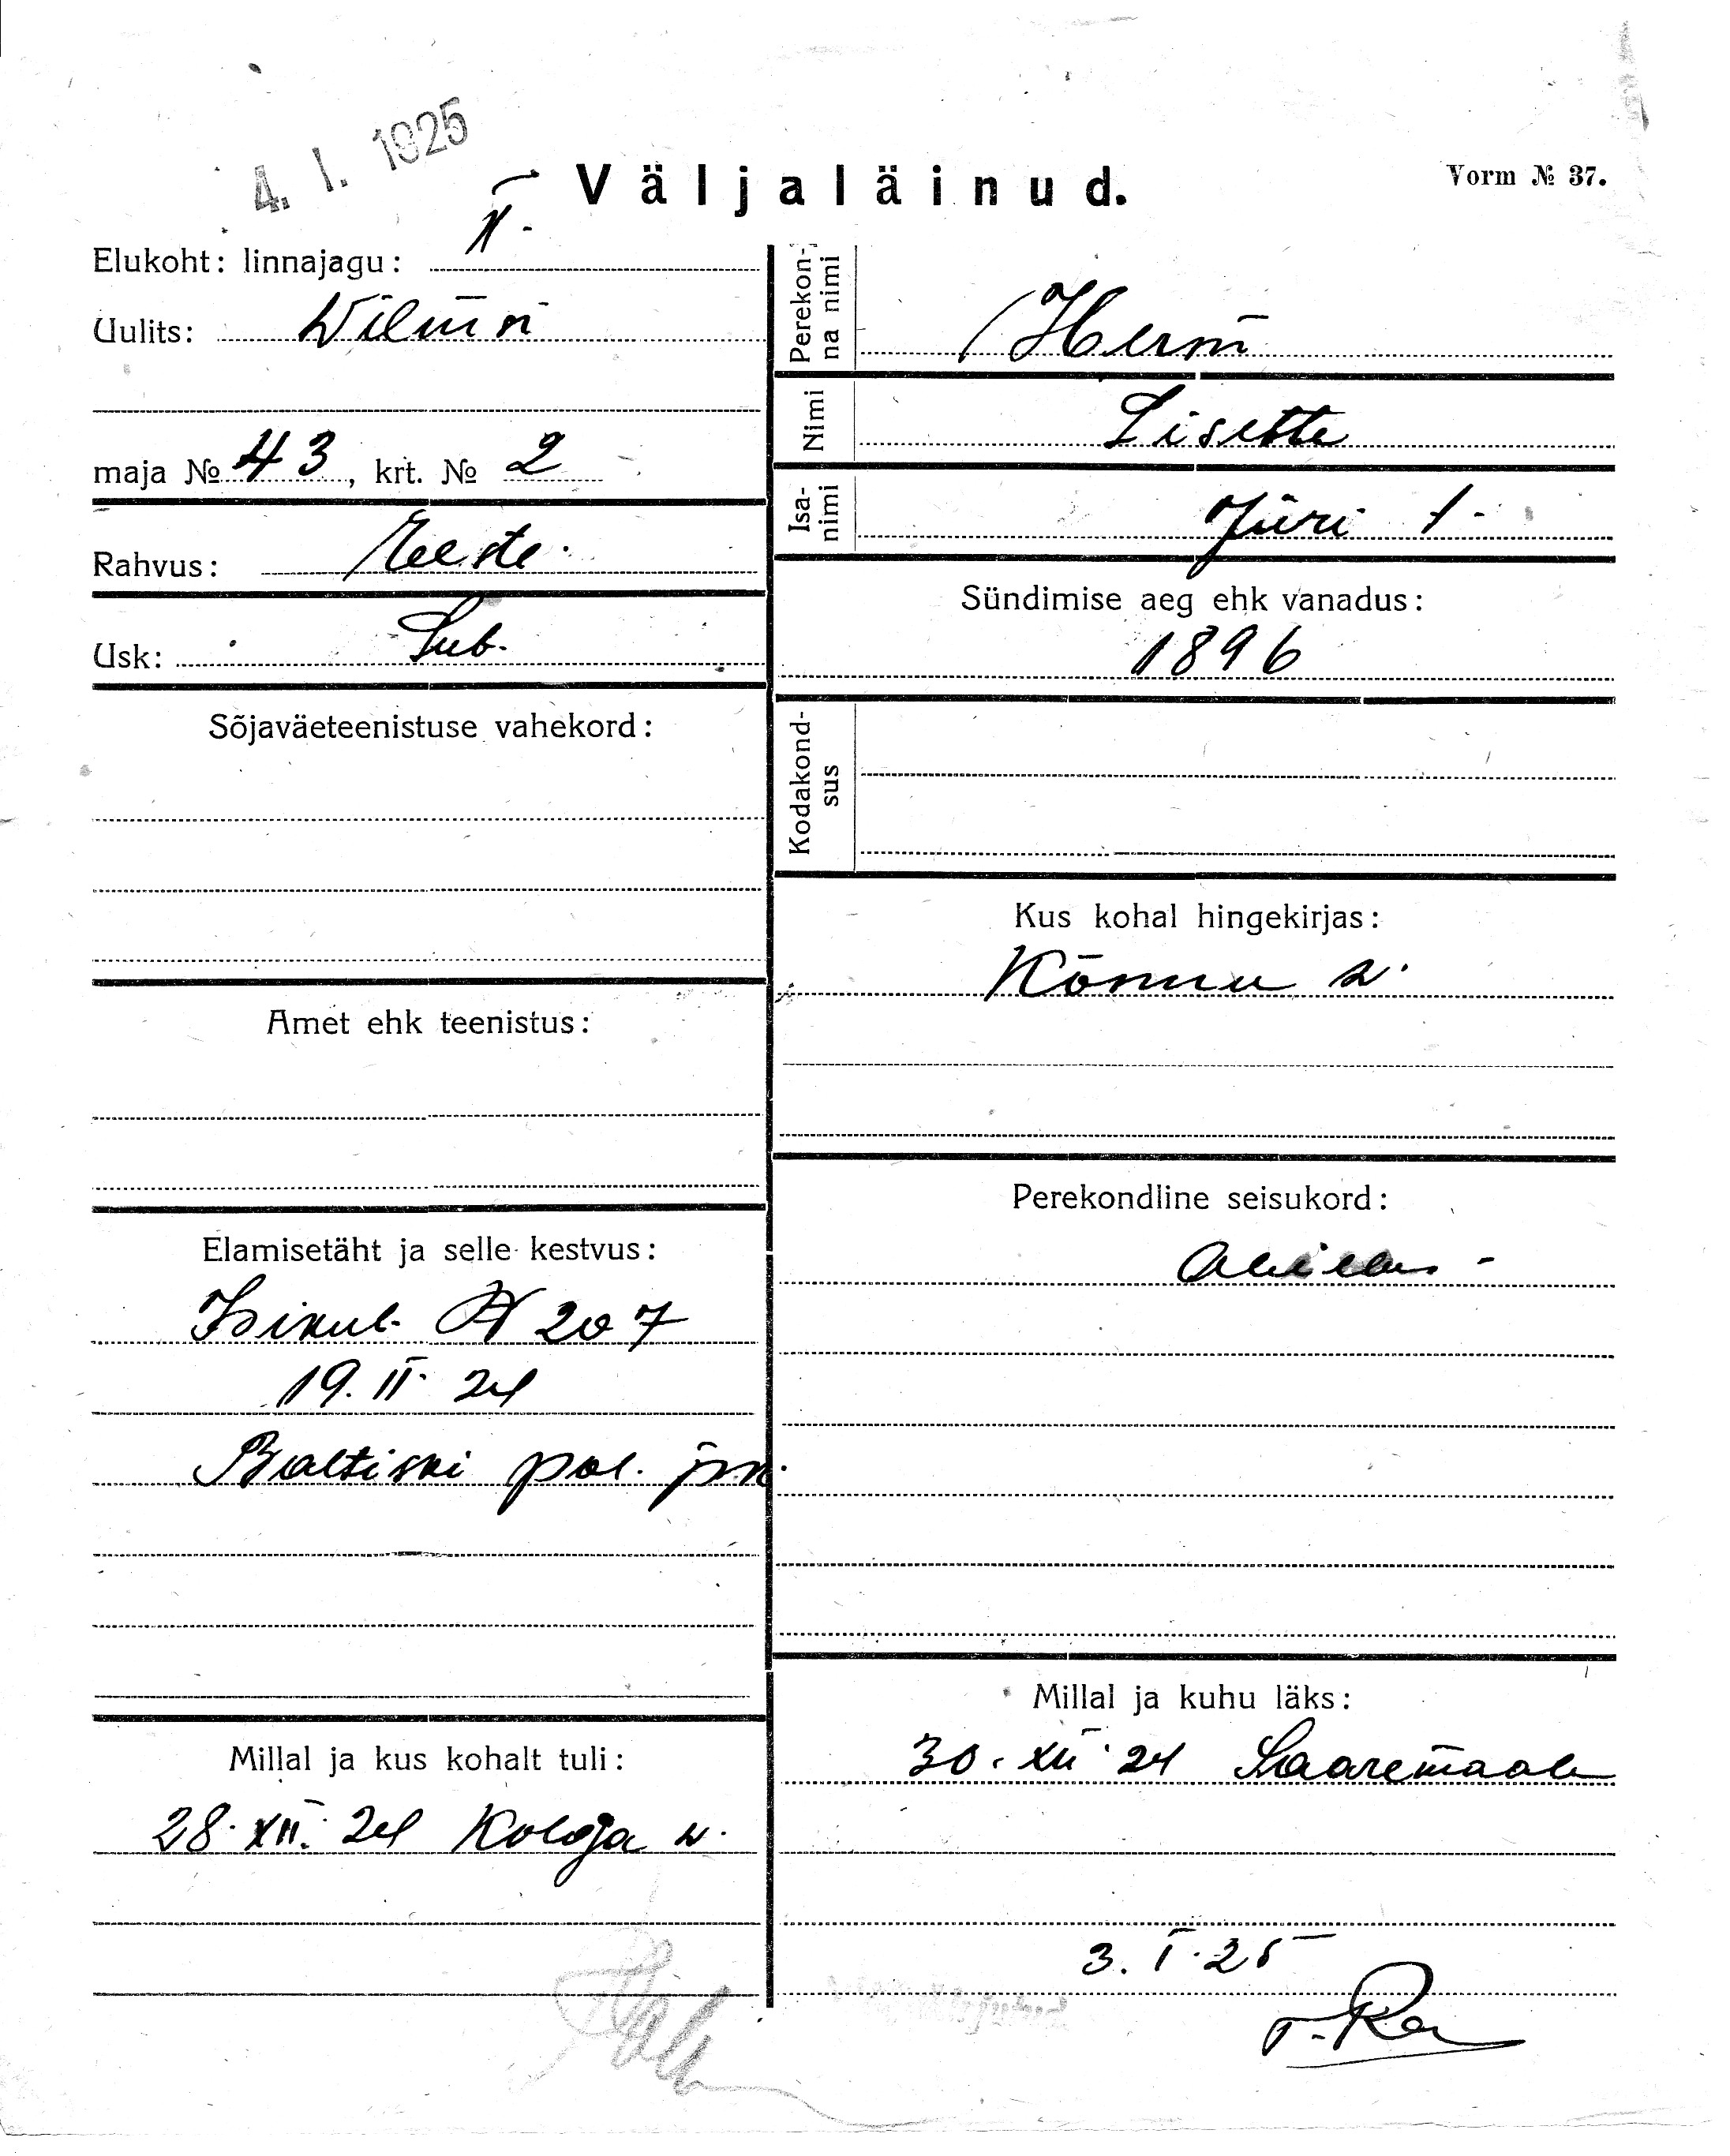 4. I. 1925
Väljaläinud.
Vorm № 37.
Elukoht: linnajagu:
Uulits: Wilmsi
maja № 43, krt. № 2
Rahvus: Eeste
Usk: Lut.
Sõjaväeteenistuse vahekord:
Amet ehk teenistus:
Elamisetäht ja selle kestvus:
Isikut. N 207
19. II. 24
Baltiski pol. jsk.
Millal ja kus kohalt tuli:
28. XII. 24 Kolga w.
Perekonna nimi
Herm
Nimi Lisette
Isanimi Jüri t.
Sündimise aeg ehk vanadus:
1896
Kodakondsus
Kus kohal hingekirjas:
Kõnnu w.
Perekondline seisukord:
Abielus -
Millal ja kuhu läks:
30. XII. 24 Saaremaale
3. I. 25